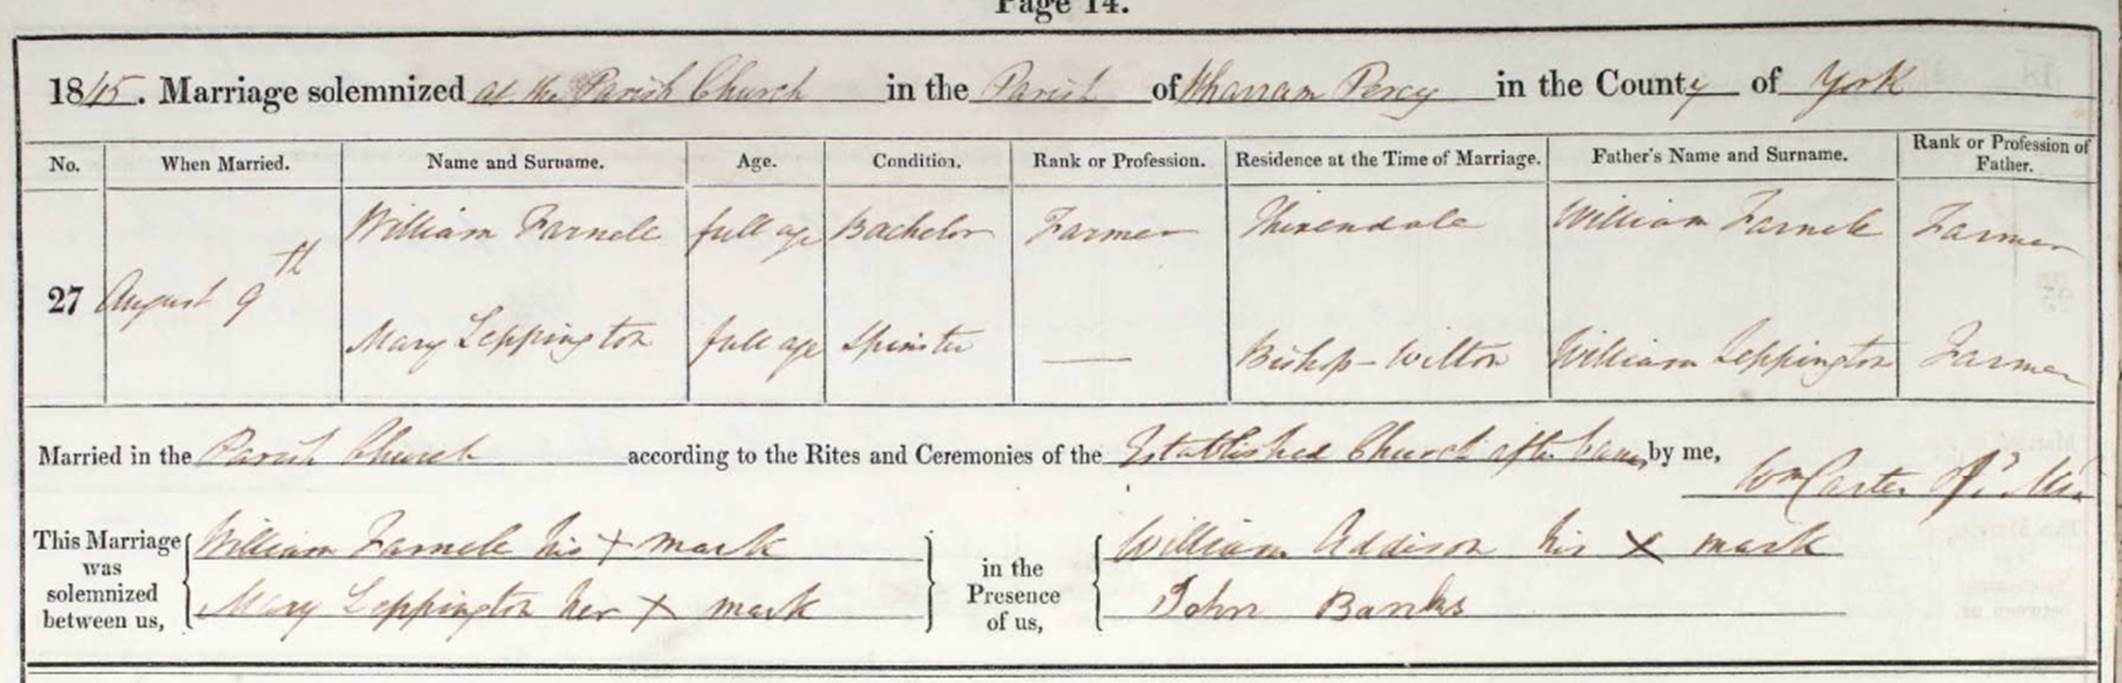 Page 14.
1845. Marriage solemnized at the Parish Church in the Parish of Wharram Percy in the County of York
No. When Married. Name and Surname. Age. Condition. Rank or Profession. Residence at the Time of Marriage. Father's Name and Surname. Rank or Profession of Father.
William Farnele full age Bachelor Farmer Thixendale William Farnele Farmer
27 August 9th
Mary Leppington full age Spinster — Bishop-Wilton William Leppington Farmer
Married in the Parish Church according to the Rites and Ceremonies of the Established Church after banns by me,
Wm Carter
This Marriage was solemnized between us, William Farnele his X mark in the Presence of us, William Addison his X mark
Mary Leppington her X mark John Banks